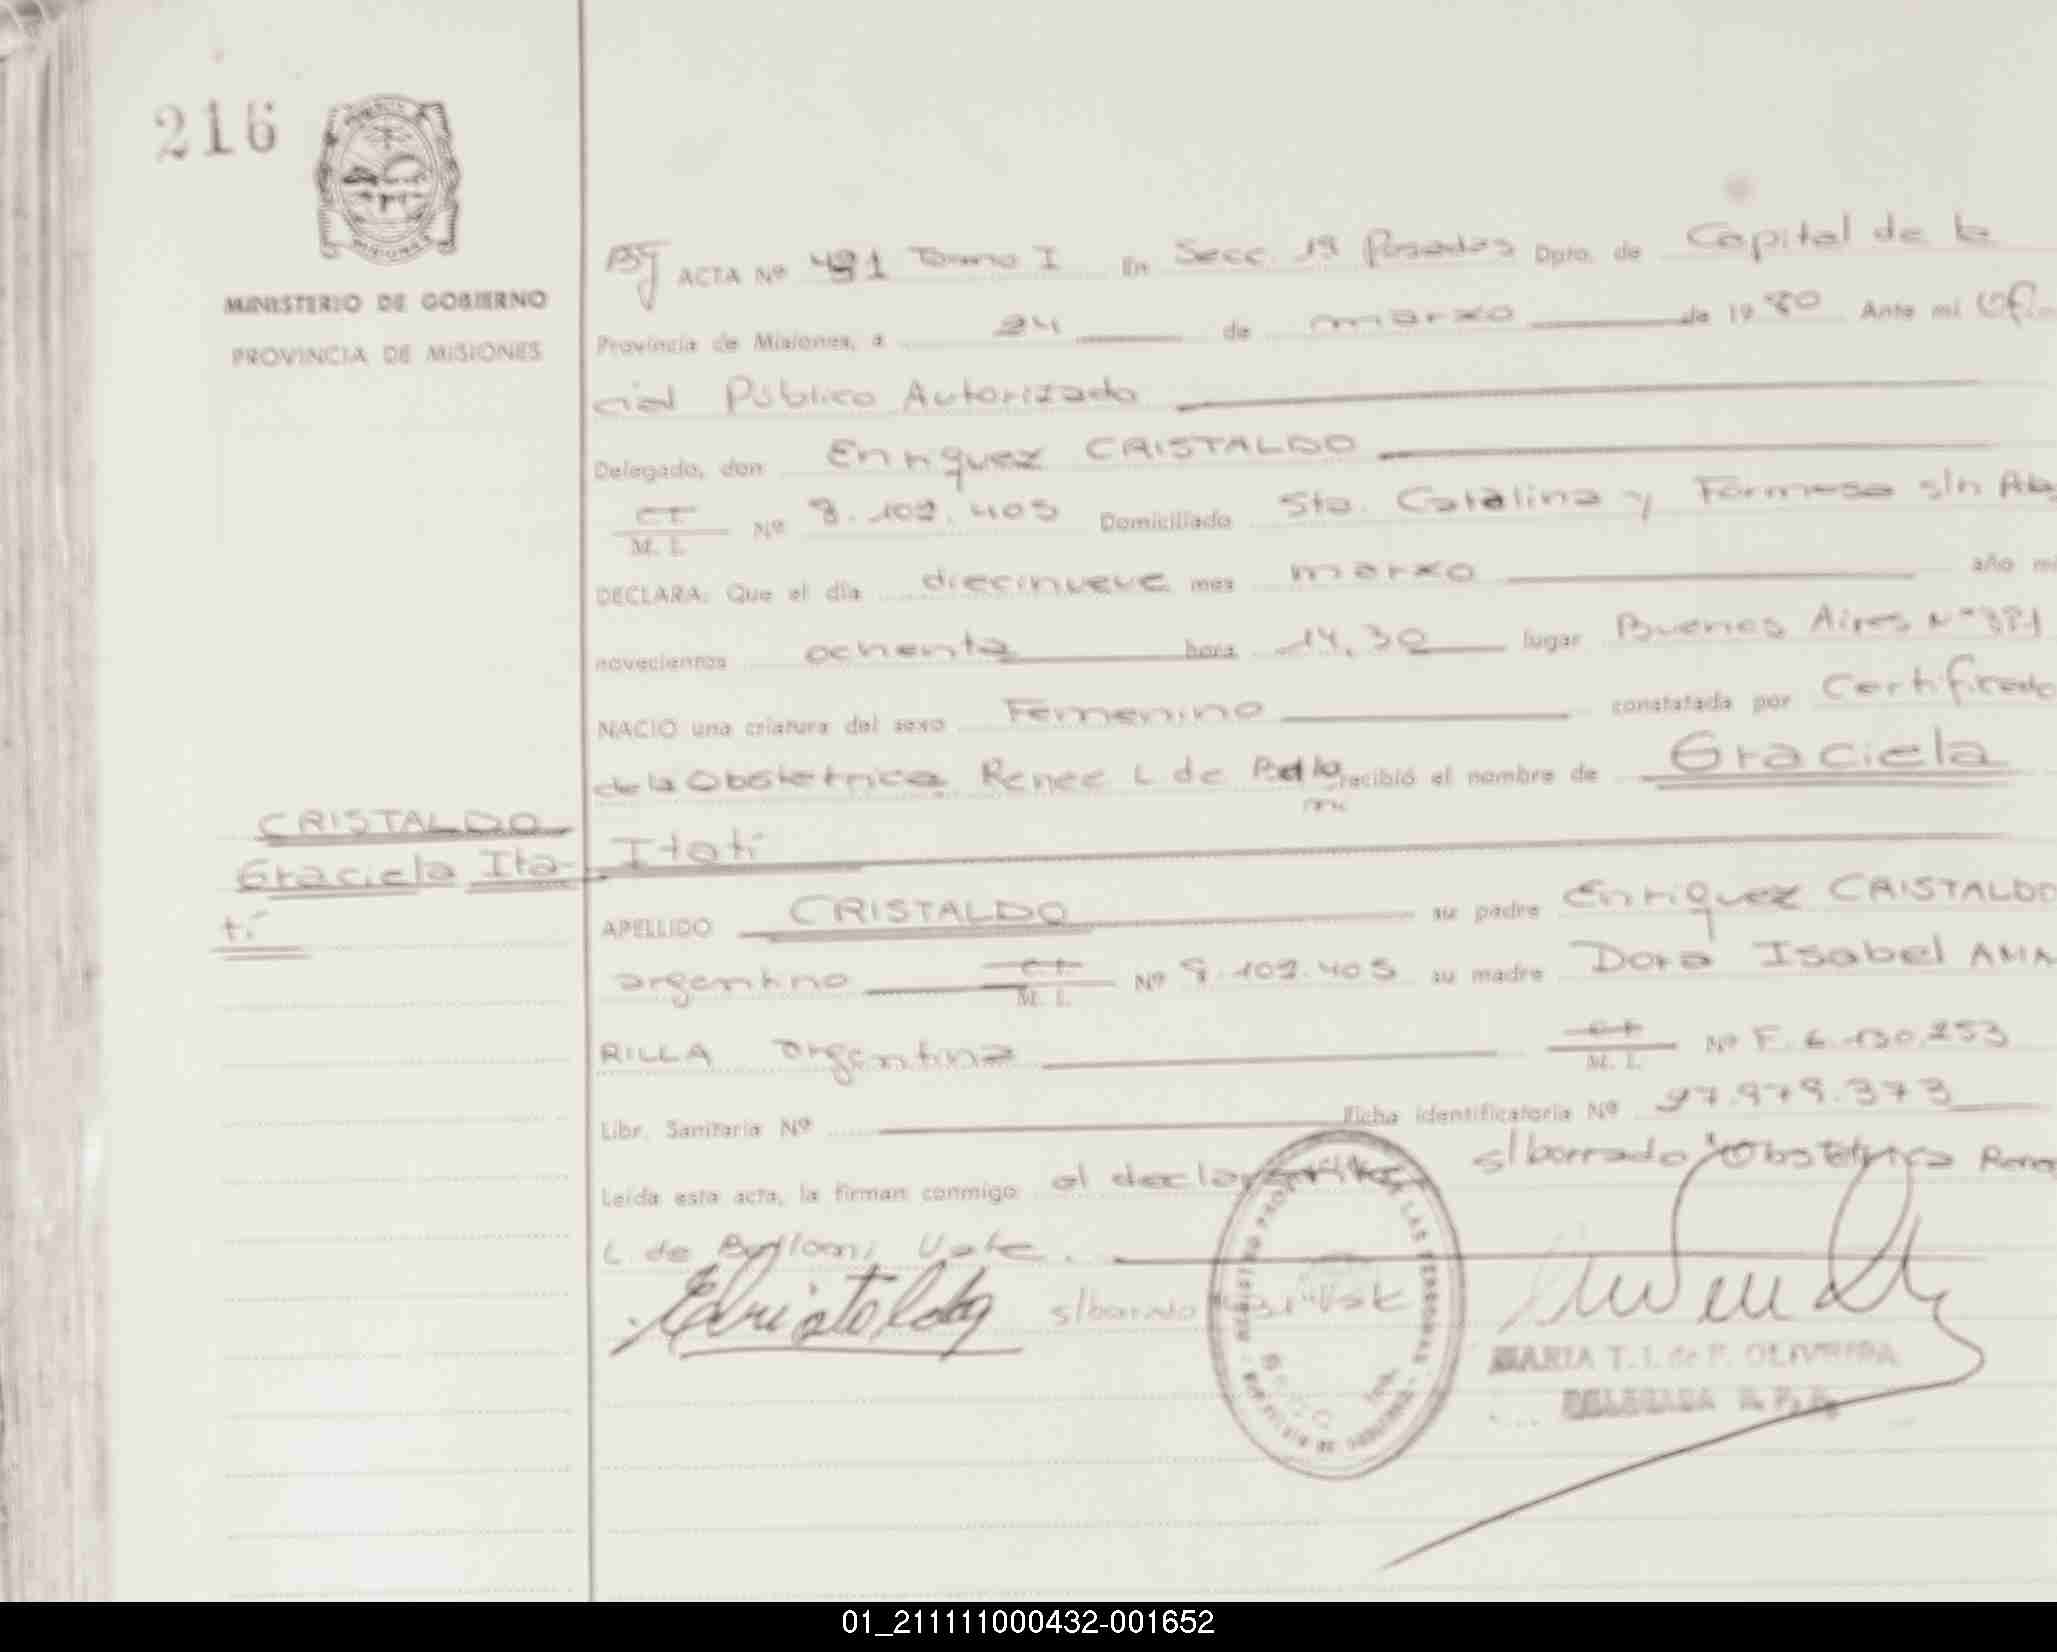 216
MINISTERIO DE GOBIERNO
PROVINCIA DE MISIONES
ACTA Nº 491 Tomo I En Secc. 1ª Posadas Dpto. de Capital de la
Provincia de Misiones, a 24 de marzo de 1980 Ante mi Ofi-
cial Público Autorizado
Delegado, don Enriquez CRISTALDO
M. I. Nº 8.109.405 Domiciliado Sta. Catalina y Formosa s/n
DECLARA: Que el día diecinueve mes marzo año mil
novecientos ochenta hora 14,30 lugar Buenos Aires Nº 381
NACIO una criatura del sexo Femenino constatada por Certificado
de la Obstetrica Renee L de recibió el nombre de Graciela
CRISTALDO
Graciela Ita-
tí
Itatí
APELLIDO CRISTALDO su padre Enriquez CRISTALDO
argentino M. I. Nº 8.109.405 su madre Dora Isabel AMA
RILLA argentina M. I. Nº F. 6.130.253
Libr. Sanitaria Nº Ficha identificatoria Nº 27.979.373
Leída esta acta, la firman conmigo el declarante s/borrado "Obstetrica Renee
L. de Vale.
s/borrado Vale
MARIA T. I. de P. OLIVEIRA
DELEGADA R. P. P.
01_211111000432-001652